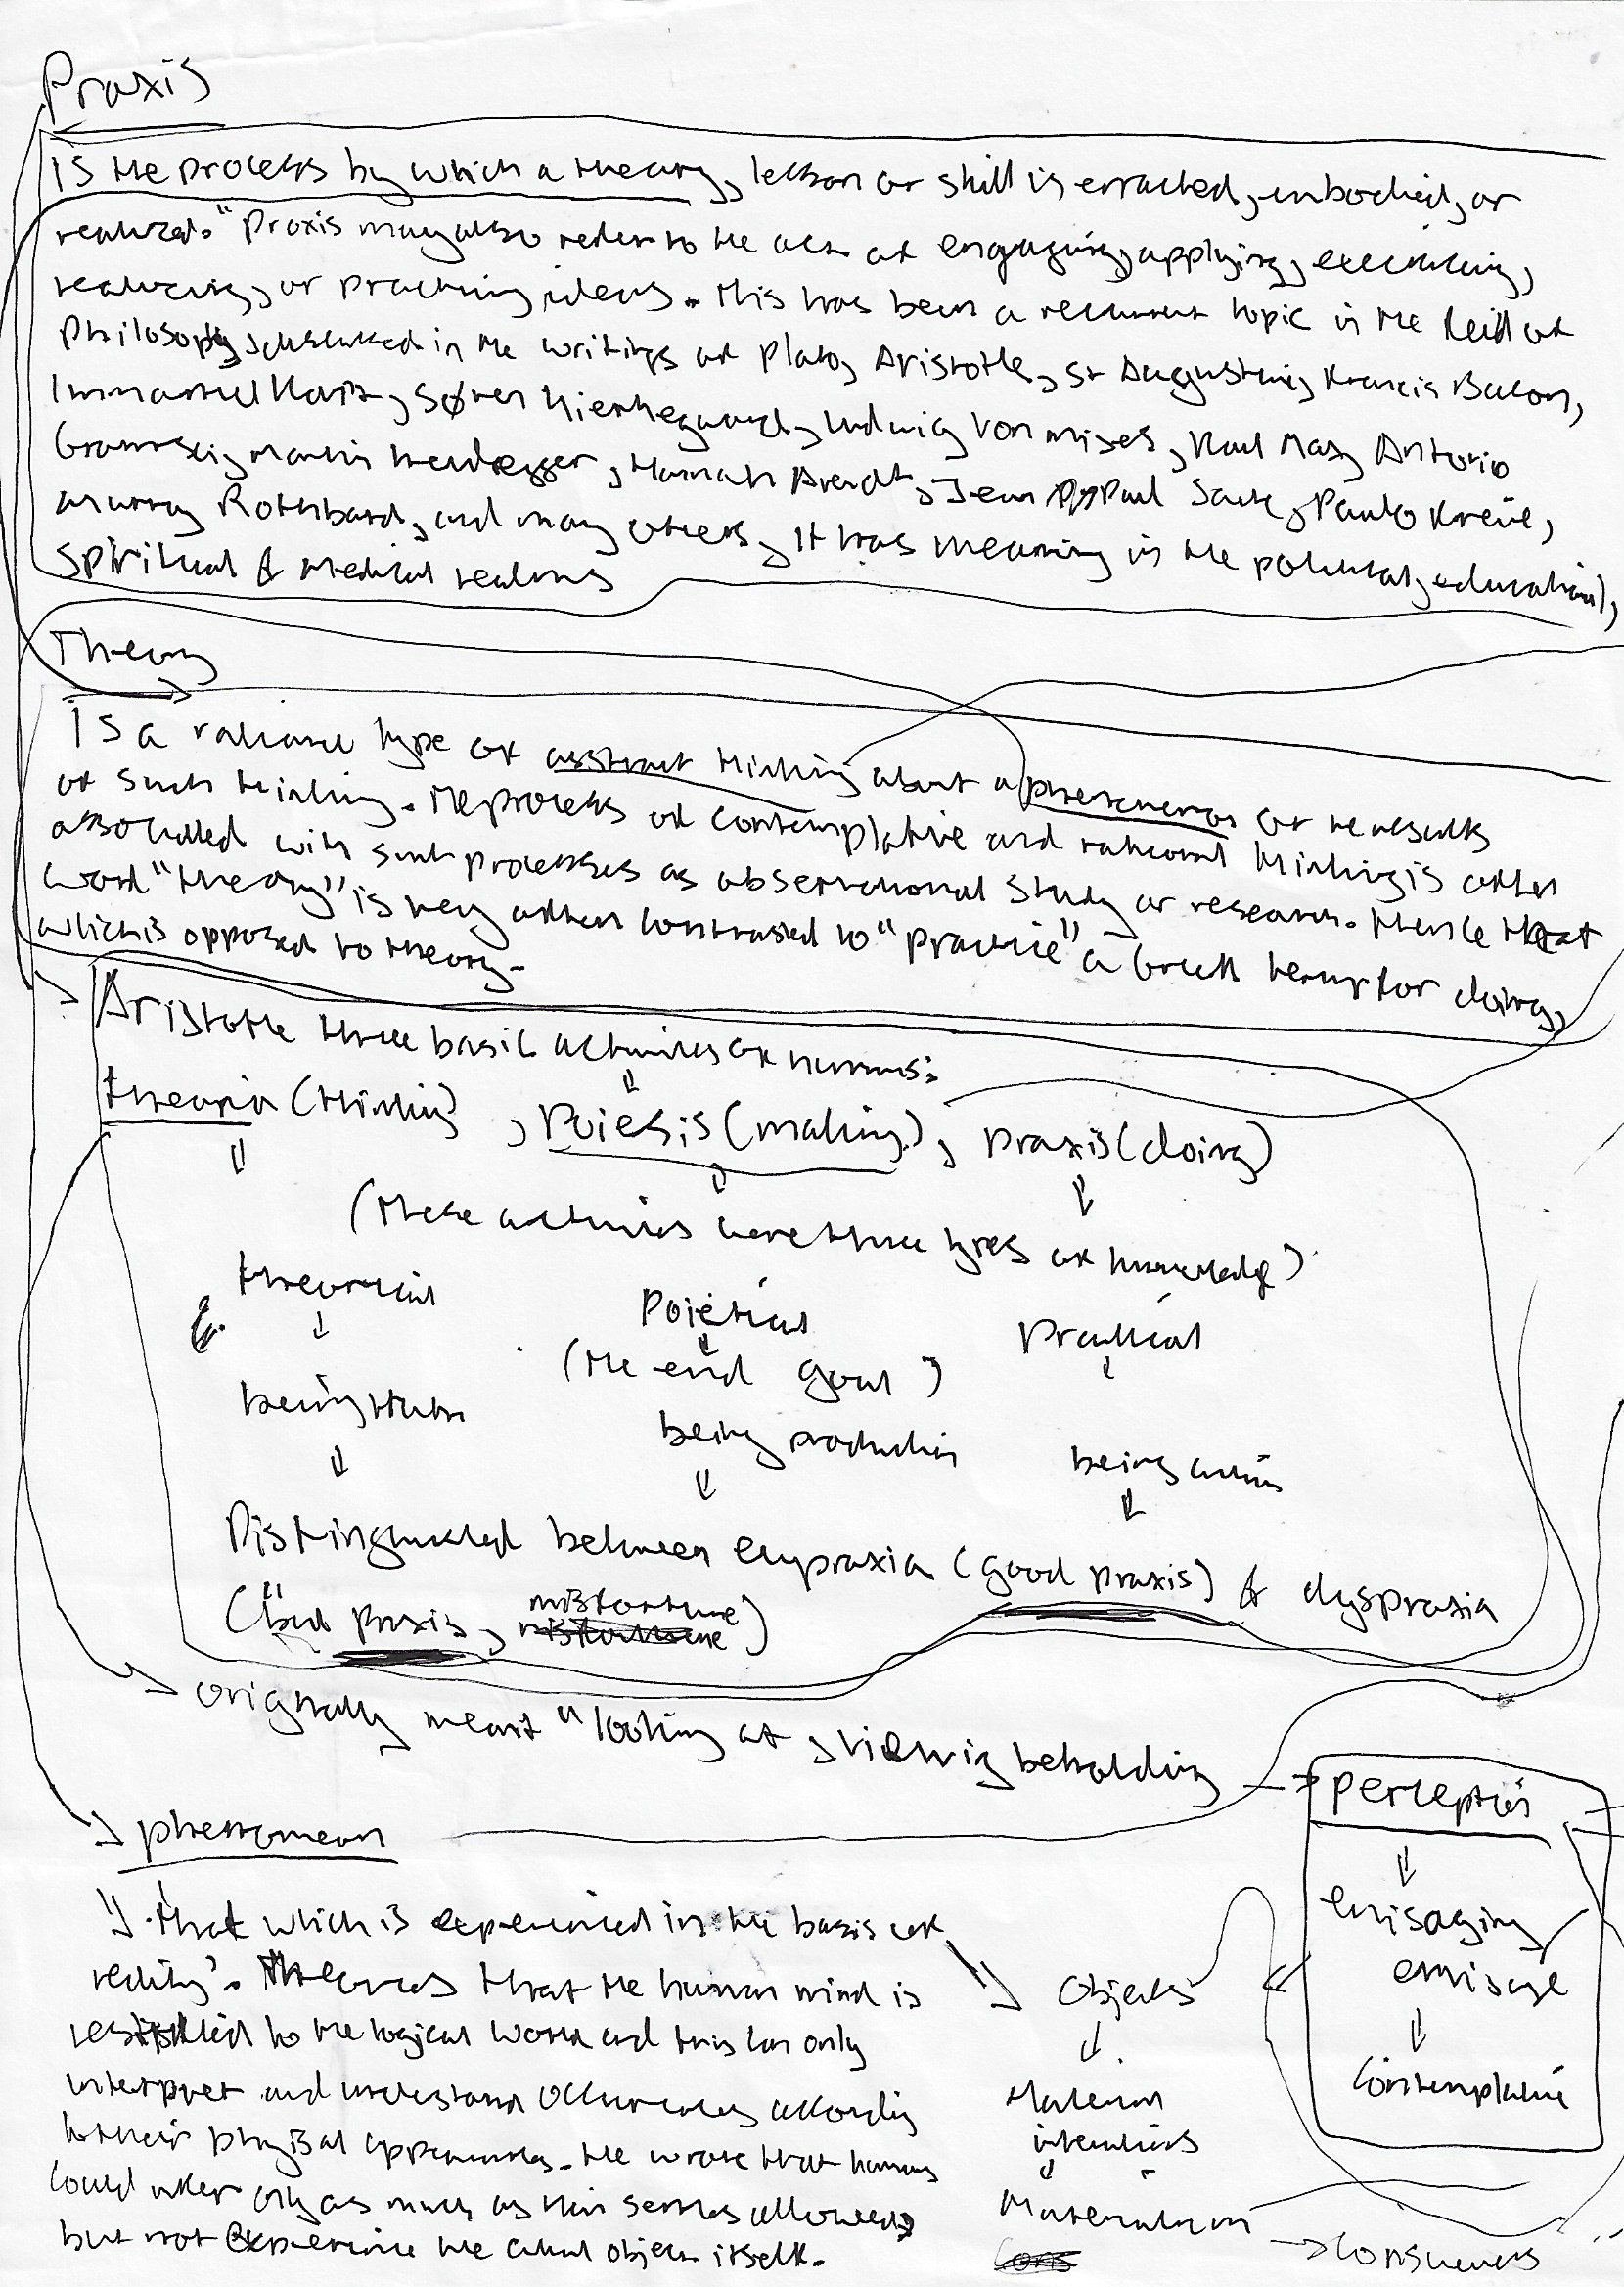 Praxis
is the process by which a theory, lesson or skill is enacted, embodied, or
realized. "Praxis may also refer to the act of engaging, applying, exercising,
realizing, or practicing ideas. This has been a recurrent topic in the field of
Philosophy, discussed in the writings of Plato, Aristotle, St Augustine, Francis Bacon,
Immanuel Kant, Søren Kierkegaard, Ludwig Von Mises, Karl Marx, Antonio
Gramsci, Martin Heidegger, Hannah Arendt, Jean Paul Sartre, Paulo Freire,
Murray Rothbard, and many others, It has meaning in the political, educational,
Spiritual & Medical realms
Theory
is a rational type of abstract thinking about a phenomenon or the results
of such thinking. The process of contemplative and rational thinking is often
associated with such processes as observational Study or research. Hence that
word "theory" is very often contrasted to "practice" a Greek term for doing,
which is opposed to theory.
Aristotle three basic activities of humans:
theoria (thinking), Poiesis (making), praxis (doing)
(These activities were three types of knowledge)
theoretical Poietical Practical
(the end goal)
being truth being production being action
Distinguished between eupraxia (good praxis) & dyspraxia
("bad praxis, misfortune)
originally meant "looking at, viewing beholding
perception
phenomenon
envisaging
that which is experienced in the basis of
reality". Theories that the human mind is
envisage
Objects
restricted to the logical world and thus can only
contemplative
interpret and understand occurrences according
Material
to their physical appearances. He wrote that humans
intentions
could infer only as much as their senses allowed,
Materialism
but not experience the actual object itself.
Consciousness